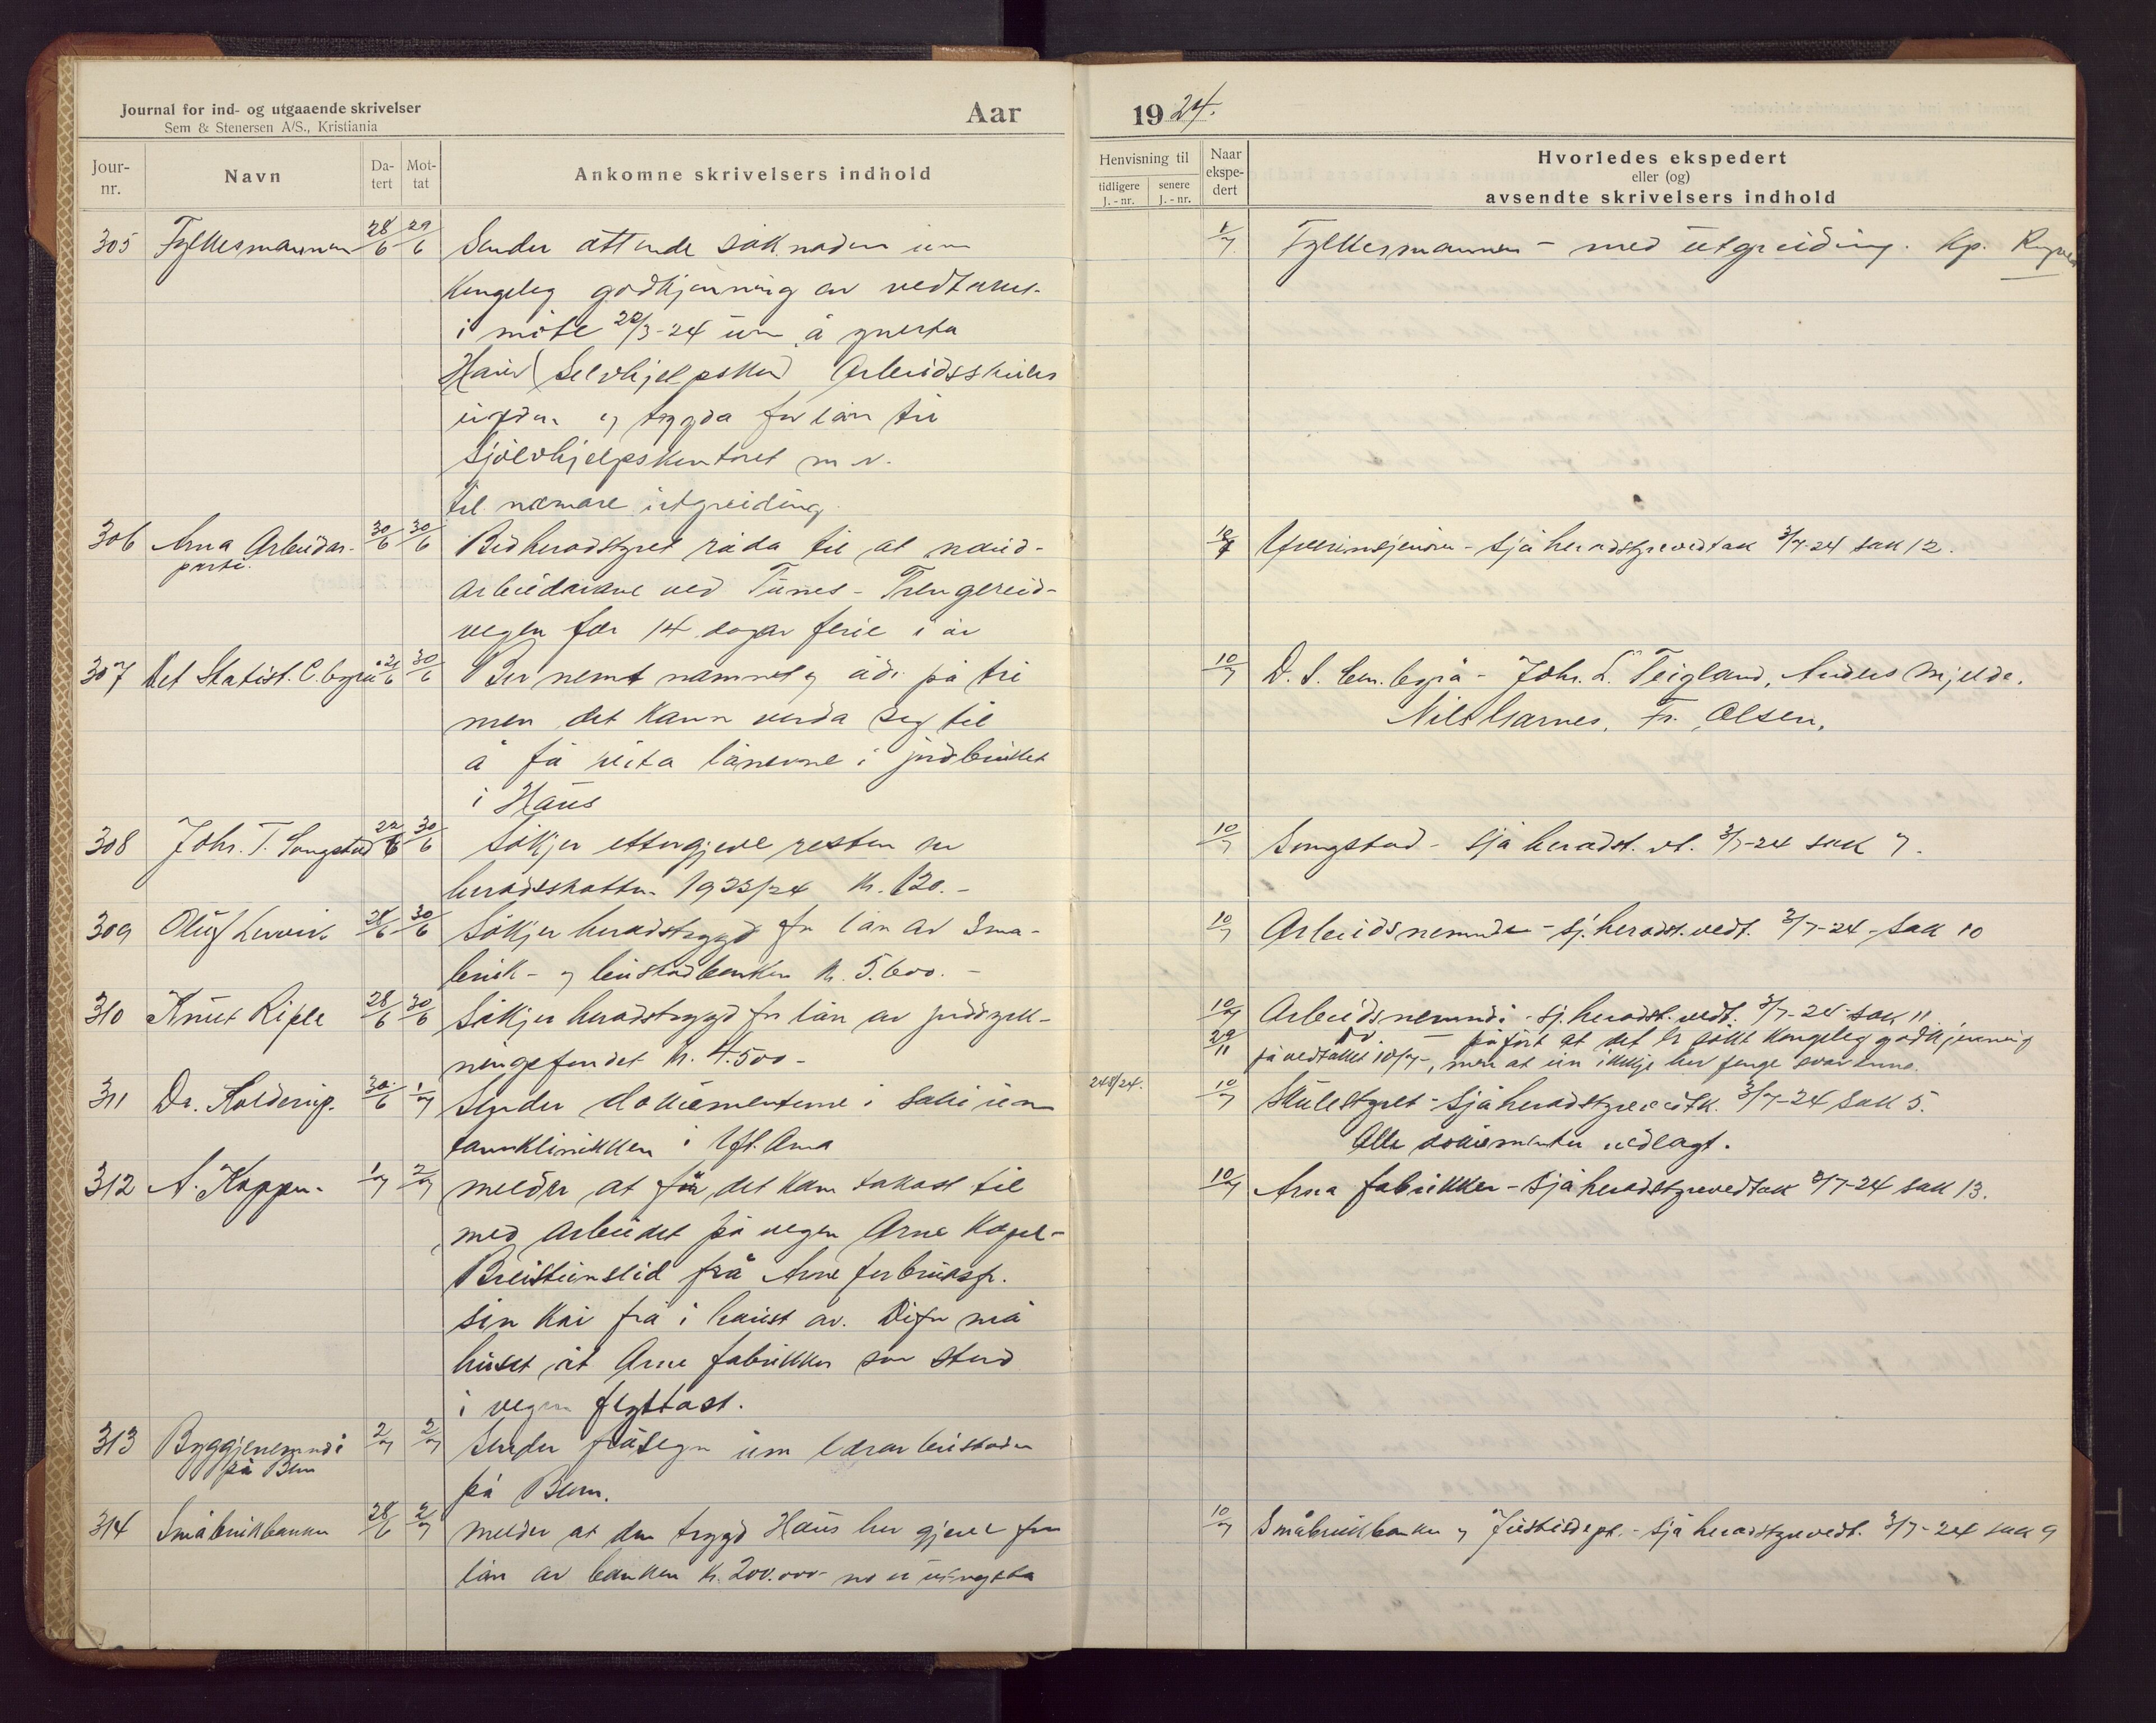 Journal for ind- og utgaaende skrivelser
Sem & Stenersen A/S., Kristiania
Aar
Jour-nr.
Navn
Da-tert
Mot-tat
Ankomne skrivelsers indhold
305 Fylkesmannen 28/6 29/6 Sender attende søknaden um
Kongeleg godkjenning av vedtaket
i møte 22/3-24 um å
Haus Selvhjelpskas Arbeidsskule
og trygda for lån til
Sjølvhjelpskontoret m.v.
til nærmare utgreiding
306 Arna Arbeidar- 30/6 30/6 Bed heradstyret råda til at naud-
parti.
arbeidarane ved Tunes - Trengereid-
vegen fær 14 dagar ferie i år
307 Det Statist. C. byrå 21/6 30/6 Ber nemt namnet og adr. på tri
men det kann venda seg til
å få vita lånevne i jordbruket
i Haus
308 Johs. T. Songstad 27/6 30/6 Søkjer ettergjeve resten av
heradsskatten 1923/24 kr. 120.-
309 Oluf Lervik 28/6 30/6 Søkjer heradstrygd for lån av Små-
bruk- og bustadbanken kr. 5.600.-
310 Knut Ripel 28/6 30/6 Søkjer heradstrygd for lån av jorddyrk-
ningsfondet kr. 4.500-
311 Dr. Kolderup. 30/6 1/7 Sender dokumenterne i saki um
tannklinikken i Yt. Arna
312 A. Koppen 1/7 2/7 melder at før det kan takast til
med arbeidet på vegen Arne Kapel-
Breisteinslid frå Arne forbruksf.
sin kai frå i haust av. Difor må
huset åt Arne fabrikker som stend
i vegen flyttast.
313 Byggjenemndi 2/7 2/7 Sender fråsegn um lærarbustaden
på Blom
på Blom.
314 Småbrukbanken 28/6 2/7 melder at den trygd Haus har gjeve for
lån av banken kr. 200.000- no er
19 24.
Henvisning til
tidligere J.-nr.
senere J.-nr.
Naar ekspe-dert
Hvorledes ekspedert
eller (og)
avsendte skrivelsers indhold
1/7 Fylkesmannen - med utgreiding. Kp.
10/7 - sjå heradstyrevedtak 3/7-24 sak 12.
10/7 D. S. Cen. byrå - Johs. L. Teigland, Anders Mjelde.
Nils Garnes, Fr. Olsen.
10/7 Songstad - sjå heradst. vt. 3/7-24 sak 7.
10/7 Arbeidsnemnda - sj. heradst. vedt. 3/7-24 - sak 10
10/7 Arbeidsnemndi - sj. heradst. vedt. 3/7-24 sak 11
29/11 Do. — påført at det er søkt Kongeleg godkjenning
på vedtaket 10/7-, men at ein ikkje har fenge svar enno.
248/24. 10/7 Skulestyret - sjå heradstyrevedtk. 3/7-24 sak 5.
Alle dokumenter vedlagt.
10/7 Arna fabrikker - sjå heradstyrevedtak 3/7-24 sak 13.
10/7 Småbrukbanken og Justisdept. - sjå heradstyrevedt. 3/7-24 sak 9